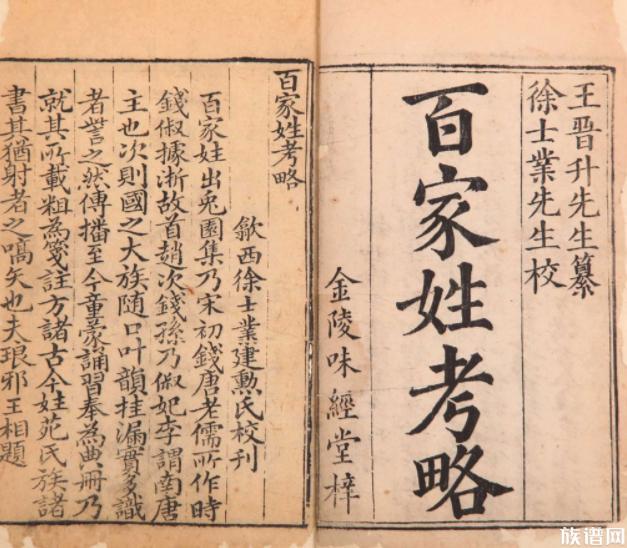 王晋升先生纂
徐士業先生校
百家姓考略
金陵味經堂梓
百家姓考略
歙西徐士業建勳氏校刊
百家姓出兎園集乃宋初錢唐老儒所作時
錢俶據浙故首趙次錢孫乃俶妃李謂南唐
主也次則國之大族随口叶韻挂漏實多識
者訾之然傳播至今童蒙誦習奉為典冊乃
就其所載粗為箋註方諸古今姓苑氏族諸
書其猶射者之嚆矢也夫琅邪王相題
族谱网